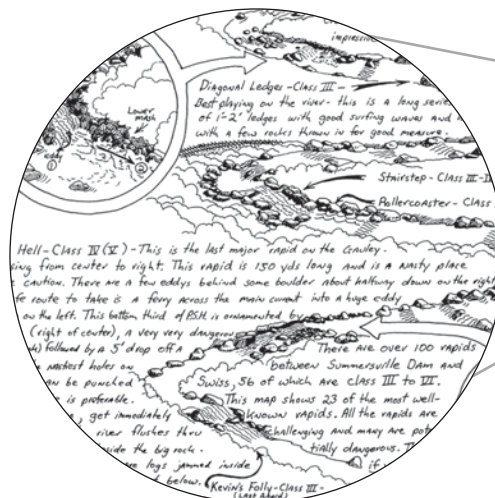 impressi
Diagonal Ledges - Class III -
Best playing on the river - this is a long series
of 1'-2' ledges with good surfing waves and
with a few rocks thrown in for good measure.
Lower
mash
Eddy
①
②
Stairstep - Class III-I
Rollercoaster - Class
Hell - Class IV (V) - This is the last major rapid on the Gauley.
sing from center to right. This rapid is 150 yds long and is a nasty place
caution. There are a few eddys behind some boulder about halfway down on the right
fe route to take is a ferry across the main current into a huge eddy
on the left. This bottom third of P.S.H. is ornamented by
(right of center), a very very dangerou
followed by a 5' drop off a
nastiest holes on
an be punched
is preferable.
, get immediately
river flushes thru
side the big rock.
are logs jammed inside
below.
There are over 100 rapids
between Summersville Dam and
Swiss, 56 of which are class III to VI.
This map shows 23 of the most well-
known rapids. All the rapids are
challenging and many are pot
tially dangerous. T
if
Kevin's Folly - Class III -